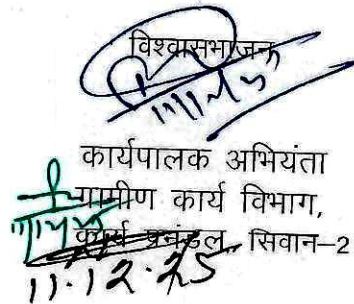 विश्वासभाजन,
11/12/25
कार्यपालक अभियंता
ग्रामीण कार्य विभाग,
कार्य प्रमंडल, सिवान-2
11.12.25